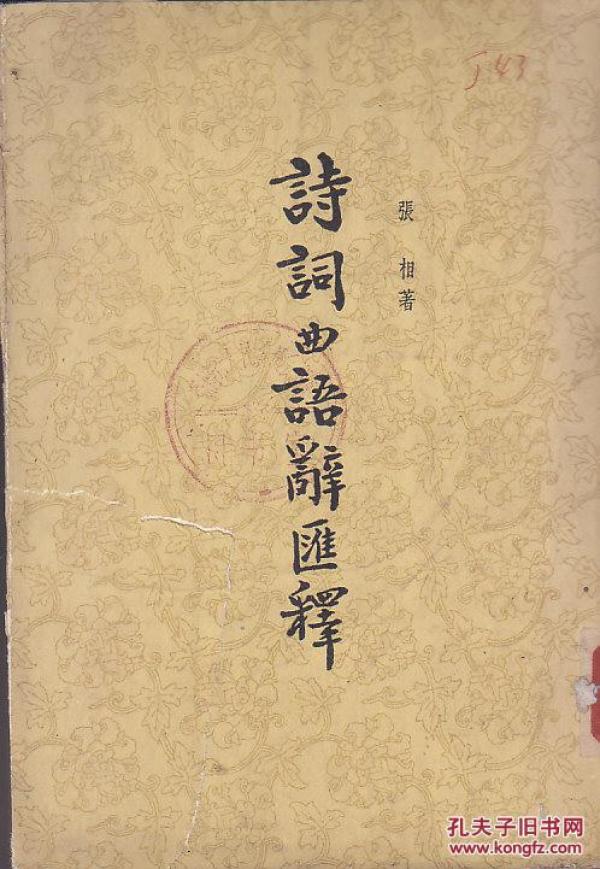 J43
張相著
詩詞曲語辭匯釋
孔夫子旧书网
www.kongfz.com